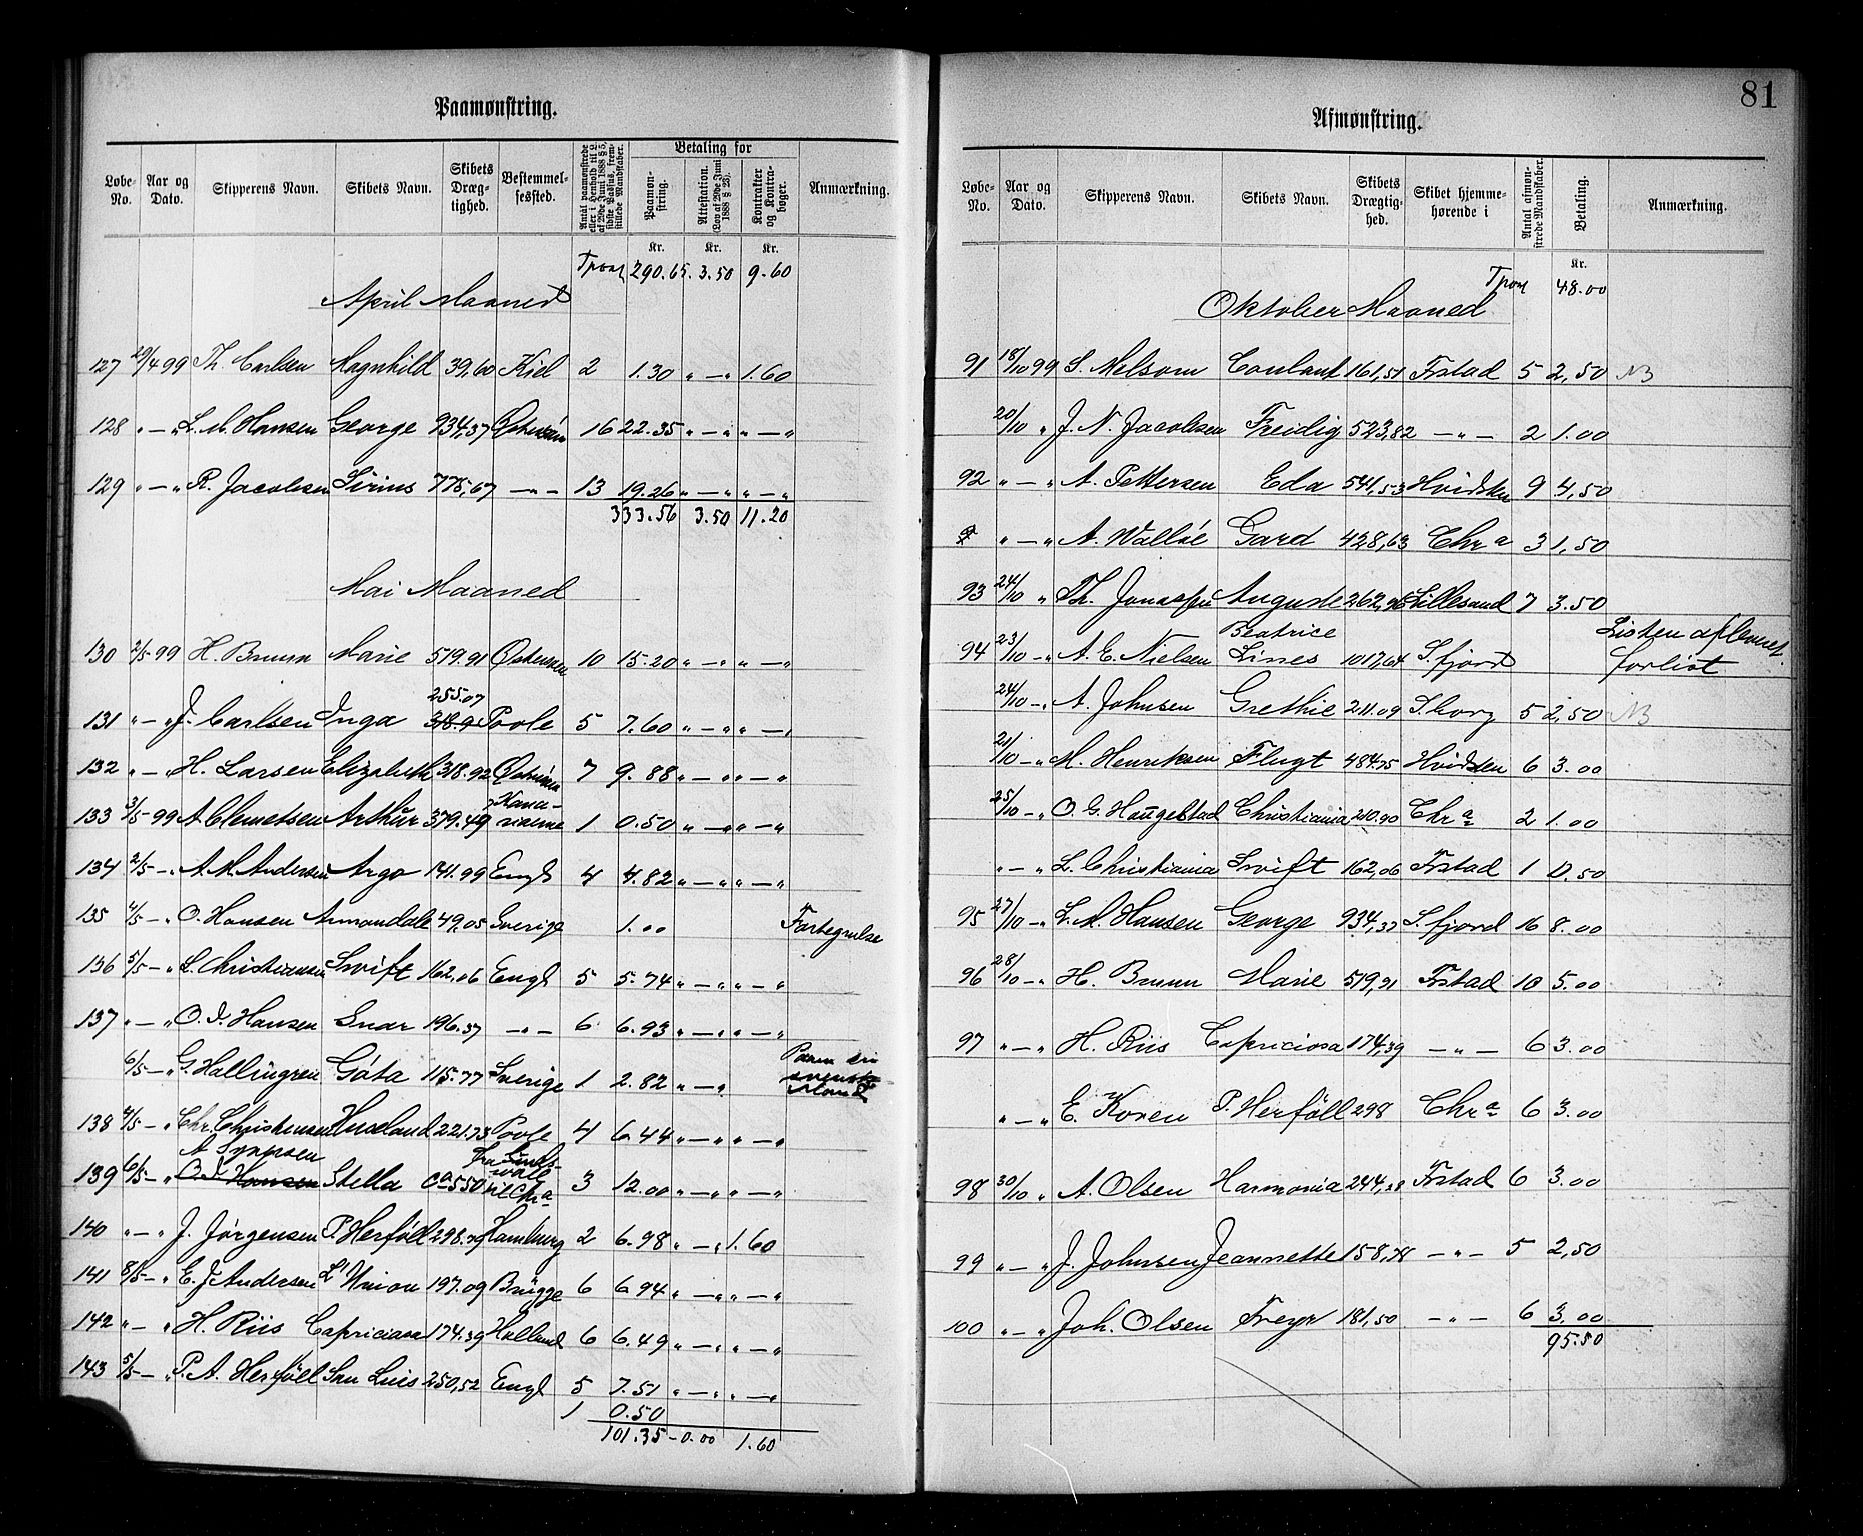 Paamønstring.
Løbe-No. Aar og Dato. Skipperens Navn. Skibets Navn. Skibets Dræg-tighed. Bestemmel-sessted. Antal paamønstrede eller i Henhold til L. af 29de Juni 1888 § 5, sidste Passus, frem-stillede Mandskaber. Betaling for Paamøn-string. Attestation. (Lov af 29de Juni 1888 § 23). Kontrakter og Kontra-bøger. Anmærkning.
Kr. Kr. Kr.
Tpont 290.65. 3.50 9.60
April Maaned
127 29/4 99 Th. Carlsen Magnhild 39,60 Kiel 2 1.30 „ — „ 1.60
128 „ — „ L. M. Hansen George 934,37 Østersøen 16 22.35 „ — „ „ — „
129 „ — „ R. Jacobsen Sirius 775,67 — „ — 13 19.26 „ — „ „ — „
333.56 3.50 11.20
Mai Maaned
130 2/5 99 H. Bruun Marie 519.91 Østersøen 10 15.20 „ — „ „ — „
255.07
131 „ — „ J. Carlsen Inga 318.92 Poole 5 7.60 „ — „ „ — „
132 „ — „ H. Larsen Elizabeth 318.92 Østersøen 7 9.88 „ — „ „ — „
133 3/5 99 A Clemetsen Arthur 379.49 Kana-rierne 1 0.50 „ — „ „ — „
134 2/5 — „ A. M. Andersen Argo 141.99 Engl 4 4.82 „ — „ „ — „
135 4/5 — „ O. Hansen Armandale 49,05 Sverige 1.00 Forbegrulse
136 5/5 — „ L. Christiansen Swift 162,06 Engl 5 5.74 „ — „ „ — „
137 „ — „ O. I. Hansen Snar 196.37 — „ — 6 6.93 „ — „ „ — „
6/5 — „ G. Hallingren Göta 115.77 Sverige 1 2.82 „ — „ Paam en svensk Mand
138 4/5 — „ Chr. Christensen Huseland 221.73 Poole 4 6.44 „ — „ „ — „
A Synnesen
139 6/5 — „ O. I. Hansen Stella Ca 550 fra Sunds-wall til Chra 3 12.00 „ — „ „ — „
140 „ — „ J. Jørgensen P. Herföll 298. Hamburg 2 6.98 „ — „ 1.60
141 8/5 — „ E. J. Andersen L'Union 197.09 Brügge 6 6.94 „ — „ „ — „
142 „ — „ H. Riis Capriciosa 174.39 Holland 6 6.49 „ — „ „ — „
143 5/5 — „ P. A. Herföll San Luis 250,52 Engl 5 7.51 „ — „ „ — „
1 0.50
101.35 — 0.00 1.60
81
Afmønstring.
Løbe-No. Aar og Dato. Skipperens Navn. Skibets Navn. Skibets Drægtig-hed. Skibet hjemme-hørende i Antal afmøn-strede Mandskaber. Betaling. Anmærkning.
Kr.
Tpont 48.00
Oktober Maaned
91 18/10 99 S. Melsom Conlant 161,51 Frstad 5 2,50 NB
20/10 „ J. N. Jacobsen Freidig 523,82 — „ — 2 1.00
92 „ — „ A. Pettersen Eda 541,53 Hvidsten 9 4,50
„ — „ A. Walløe Gard 428,63 Chra 3 1,50
93 24/10 „ Th. Jonassen Auguste 262,96 Lillesand 7 3.50
94 23/10 — „ A. E. Nielsen Beatrice Lines 1017,64 S.fjord Listen afleveret. forlist
24/10 — „ A. Johnsen Grethie 211.09 S.borg 5 2,50 NB
21/10 — „ M. Henriksen Flugt 484.75 Hvidsten 6 3.00
25/10 — „ O. G. Haugestad Christiania 210.90 Chra 2 1.00
„ — „ L. Christiania Swift 162,06 Frstad 1 0.50
95 27/10 — „ L. M. Hansen George 934,37 S.fjord 16 8.00
96 28/10 — „ H. Bruun Marie 519,91 Frstad 10 5.00
97 „ — „ H. Riis Capriciosa 174,39 — „ — 6 3.00
„ — „ E. Koren P. Herföll 298 Chra 6 3.00
98 30/10 „ A. Olsen Harmonia 244,38 Frstad 6 3.00
99 „ — „ J. Johnsen Jeannette 158,78 — „ — 5 2,50
100 „ — „ Joh. Olsen Freyr 181,50 — „ — 6 3.00
95.50